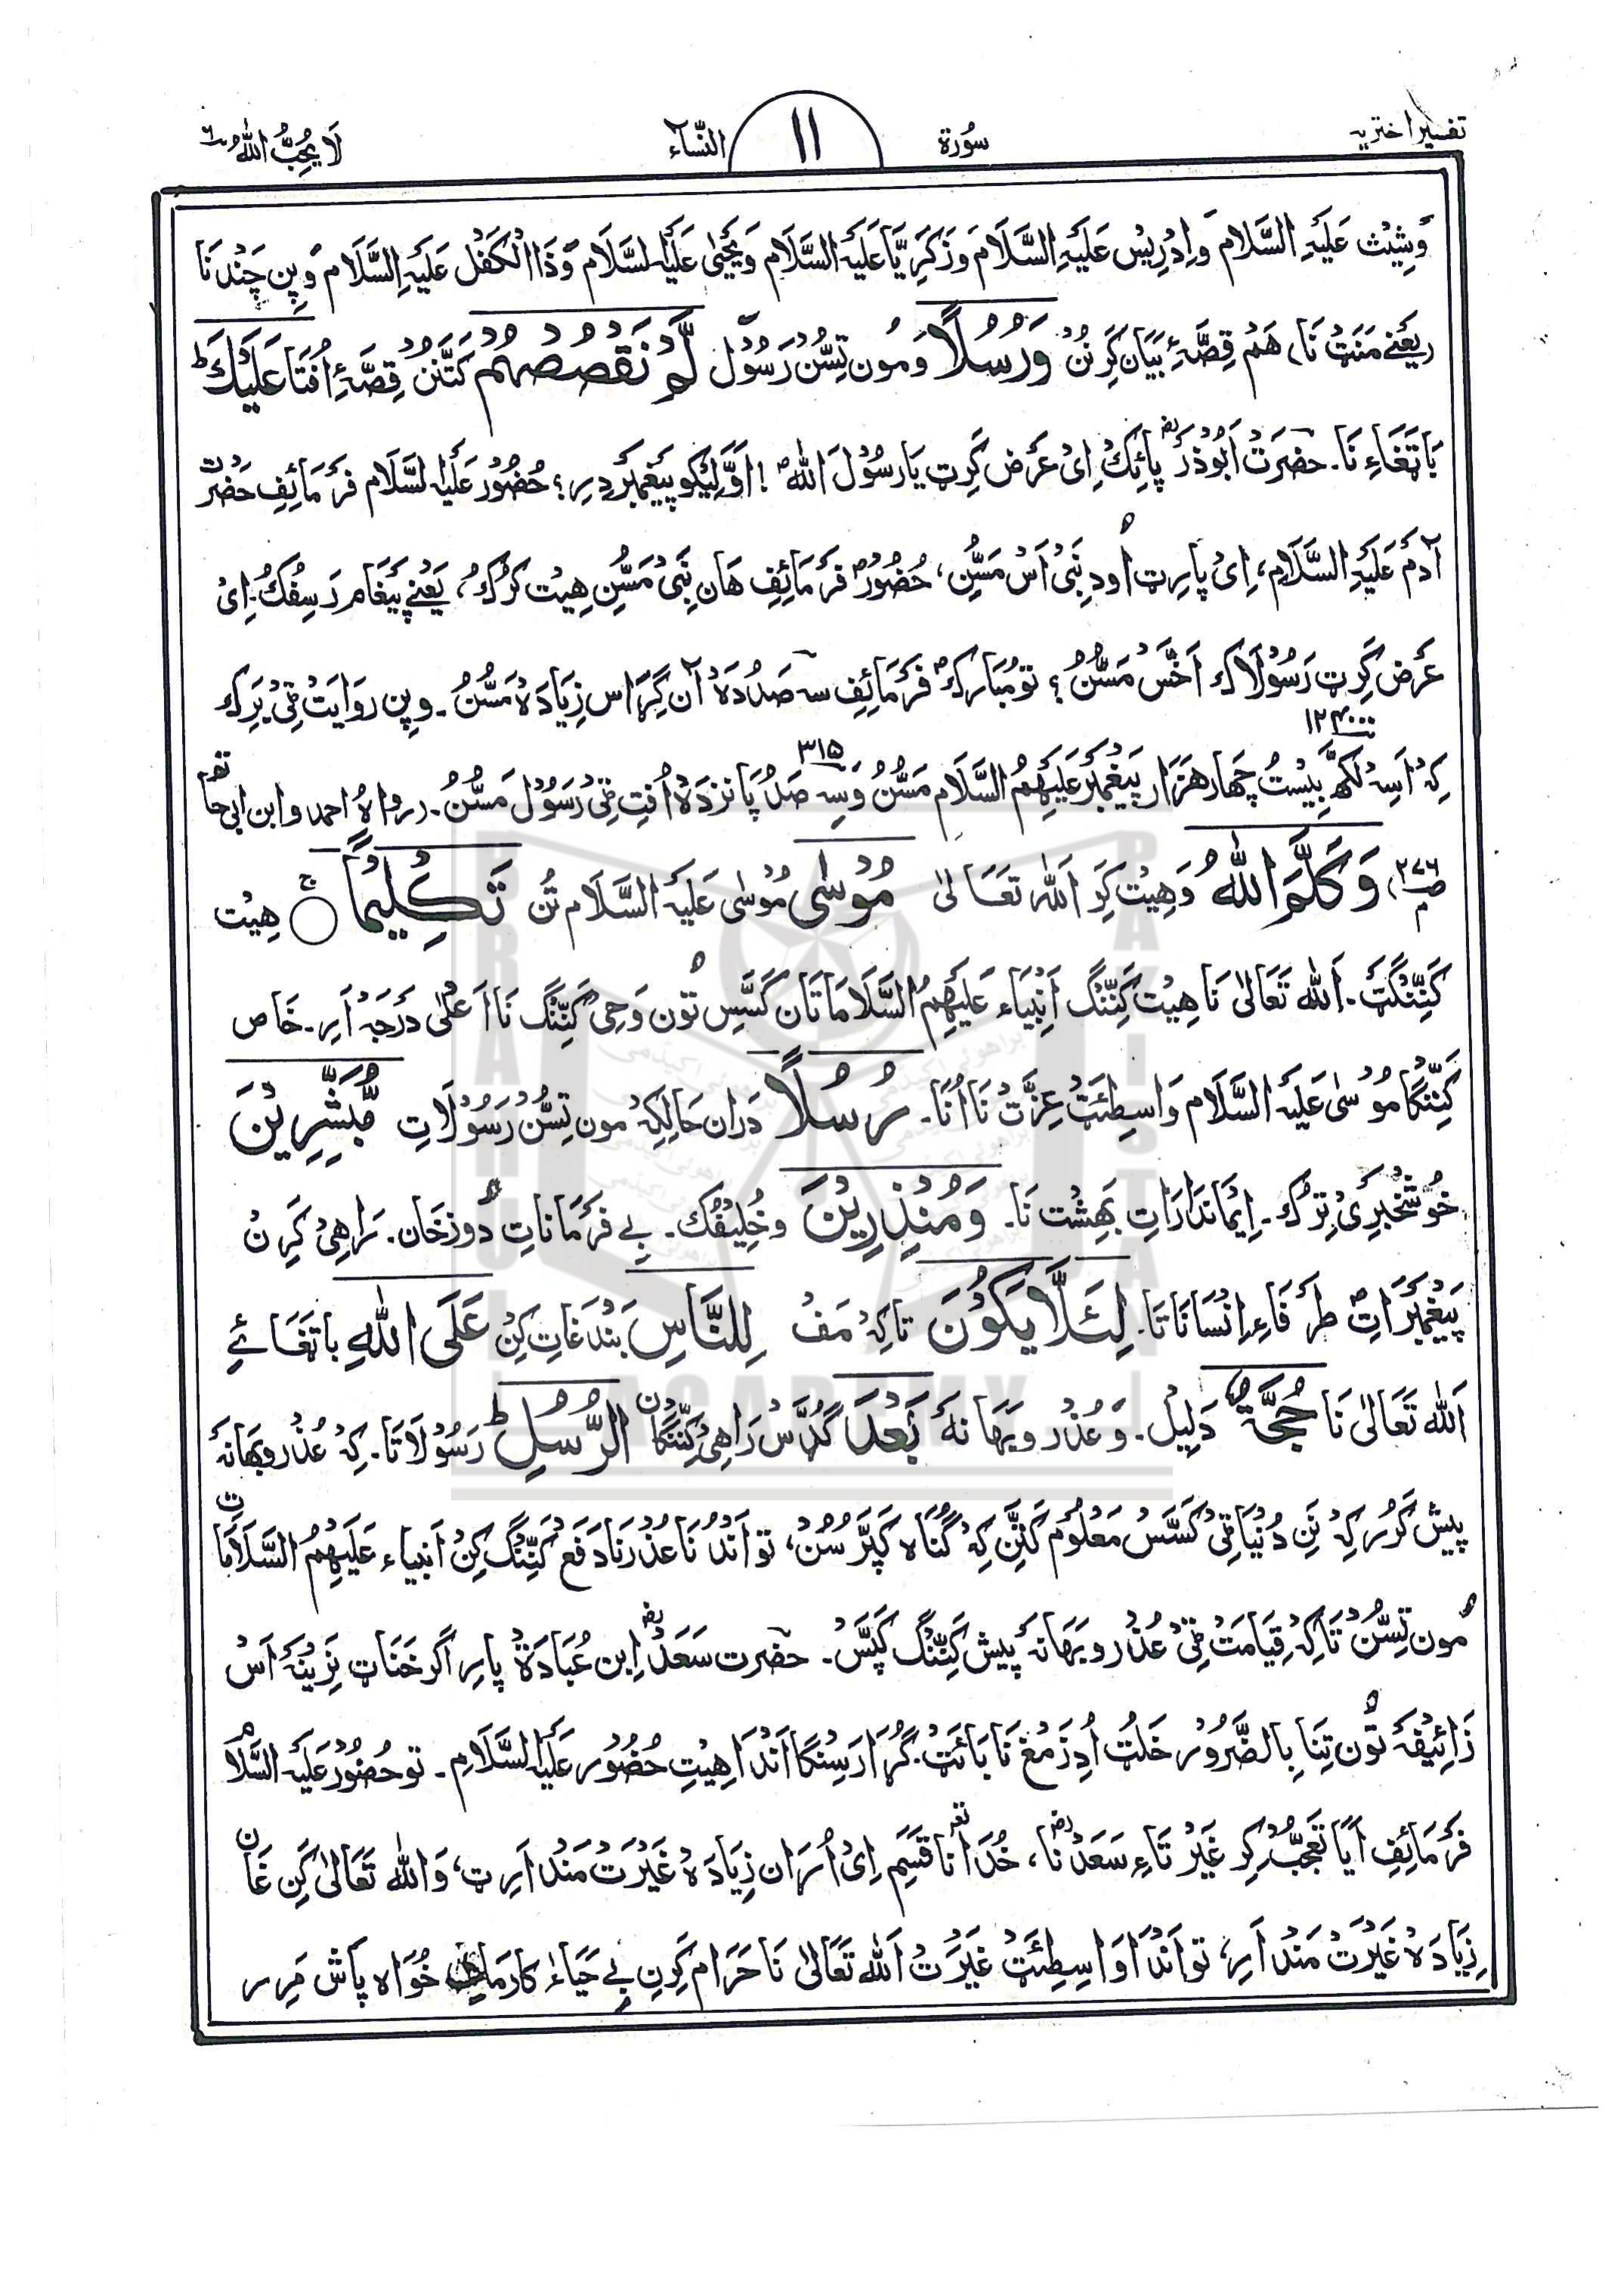 تفسیر اختریہ
سُورة
١١
النّسَآء ٤
لَا يُحِبُّ اللهُ ٦
وَشِیْث عَلَیْہِ السَّلَام وَاِدْرِیْس عَلَیْہِ السَّلَام وَزَکَرِیَّا عَلَیْہِ السَّلَام وَیَحْیٰی عَلَیْہِ السَّلَام وَذَا الْکَفْل عَلَیْہِ السَّلَام وَپِن چَنْد نَا
(یَعْنِے مَنَٹ نَا) ھَم قِصَّہِٴ بَیَان کَرِ نُنْ وَرُسُلًا وَمُون تِسُّنْ رَسُوْل لَّمْ نَقْصُصْهُمْ کَتَّنَنْ قِصَّہِٴ اُفْتَا عَلَيْكَ ؕ
بَاتَغَاءِ نَا۔ حضرَتْ اَبُوْذَرؓ پائِکْ اِیْ عَرَض کَرِٹ یَا رَسُوْلَ اللهؐ ! اَوَّلِیْکُو پَیْغَمْبَر دِرِ؟ حُضُوْر عَلَیْہِ لسَّلَام فَرْمَائِفِ حَضْرَتْ
آدَم عَلَیْہِ السَّلَام، اِیْ پَارِٹ اُودِ نَبِیْ اَسْ مَسُّنِ، حُضُوْرؐ فَرْمَائِفِ ھَان نَبِیْ مَسُّنِ ھِیْت کَرُکُ، یَعْنِے پَیْغَام رَسِفُکُ۔ اِیْ
عَرَض کَرِٹ رَسُوْلَاک اَخَّسْ مَسُّنُ؟ تو مُبَارَکؐ فَرْمَائِفِ سہ صَدُ دَہْ آن گِرَاس زِیَادَہْ مَسُّنُ۔ وپِن رِوَایَتْ ٹِیْ بَرِک
١٢٤٠٠٠
کِہْ اَسِہ لَکھ بِیْسْتُ چَھار ھَزَار پَیْغَمْبَر عَلَیْہِمُ السَّلَام مَسُّنُ وَسِہ صَدُ پَانزدَہْ اُفْتِ ٹِیْ رَسُوْل مَسُّنُ۔ (رواہُ احمد وابن ابی حاتم
٣١٥
صـ ٢٧٦) وَكَلَّمَ اللهُ وَھِیْت کَرِ اَللہ تَعَالٰی مُوْسٰى مُوْسٰی عَلَیْہِ السَّلَام تُن تَكْلِيْمًا ۚ ھِیْت
کَنِنْگَٹ۔ اَللہ تَعَالٰی نَا ھِیْت کَنِنْگ اَنْبِیَاء عَلَیْہِمُ السَّلَامَاتَان کَسَّسِ تون وَحِیْ کَنِنْگ نَا اَعْلٰی دَرَجَہْ اَرِ۔ خَاص
کَنِنْگَا مُوْسٰی عَلَیْہِ السَّلَام وَاسِطِئَٹ عِزَّتْ نَا اُنَا۔ رُسُلًا دَران حَالِکِہْ مون تِسُّنْ رَسُوْلَاتِ مُّبَشِّرِيْنَ
خُوْشْخَبَرِیْ تِرُک۔ اِیْمَانْدَارَاتِ بَھِشْت نَا۔ وَمُنْذِرِيْنَ وخُلِیْفُک۔ بے فَرْمَانَاتِ دوزخَان۔ رَاھِیْ کَرِ نْ
پَیْغَمْبَرَاتِ طَرَفَاءِ اِنْسَانَاتَا۔ لِئَلَّا يَكُوْنَ تاکِہْ مَفْ لِلنَّاسِ بَنْدَغَاتِ کِن عَلَى اللهِ بَاتَغَائے
اَللہ تَعَالٰی نَا حُجَّةٌ دَلِیْل۔ وَعُذْر وبَھَانہْ بَعْدَ گُڈّ رَاھِیْ کَنِنْگَان الرُّسُلِ ؕ رَسُوْلَاتَا۔ کِہْ عُذْر وبَھَانہْ
پِیش کَرُر کِہْ نَن دُنْیَا ٹِیْ کَسَّسْ مَعْلُوْم کَتَّن کِہْ گُنَاہ کَپَّرْ سُنْ، تو اَنْدُنَا عُذْرنَا دَفع کَنِنْگ کِنْ اَنبِیاء عَلَیْہِمُ السَّلَامَاتِ
مُون تِسُّنْ تَاکِہْ قِیَامَتْ ٹِیْ عُذْر وبَھَانَہ پِیش کَنِنْگ کَپَّسْ۔ حضرت سَعْدؓ اِبن عُبَادَۃْ پارِ اَگر خَنَاٹ نَرِینَہْ اَسْ
زَائِیْفَہْ تُون تِنَا بِالضَّرُوْر خَلَٹ اُدِ زَمْغ نَا بَائَتْ۔ گُڑَا رَسِنْگَا اَنْدَا ھِیْتِ حُضُوْر عَلَیْہِ السَّلَامِ۔ تو حُضُوْر عَلَیْہِ السَّلَام
فَرْمَائِفِ اَیَا تَعَجُّبْ کِرِ غَیْرْتَاءِ سَعْدؓ نَا، خُدَا نَا قَسَم اِیْ اُرَان زِیَادَہْ غَیْرَتْ مَنْد اَرِٹ، وَاَللہ تَعَالٰی کَن غَان
زِیَادَہْ غَیْرَتْ مَنْد اَرِ، تو اَنْدَا وَاسِطِئَٹ غَیْرَتْ اَللہ تَعَالٰی نَا حَرَام کَرِنِ بے حَیَاء کارمَاتِ خُوَاہ پَاش مَرِر